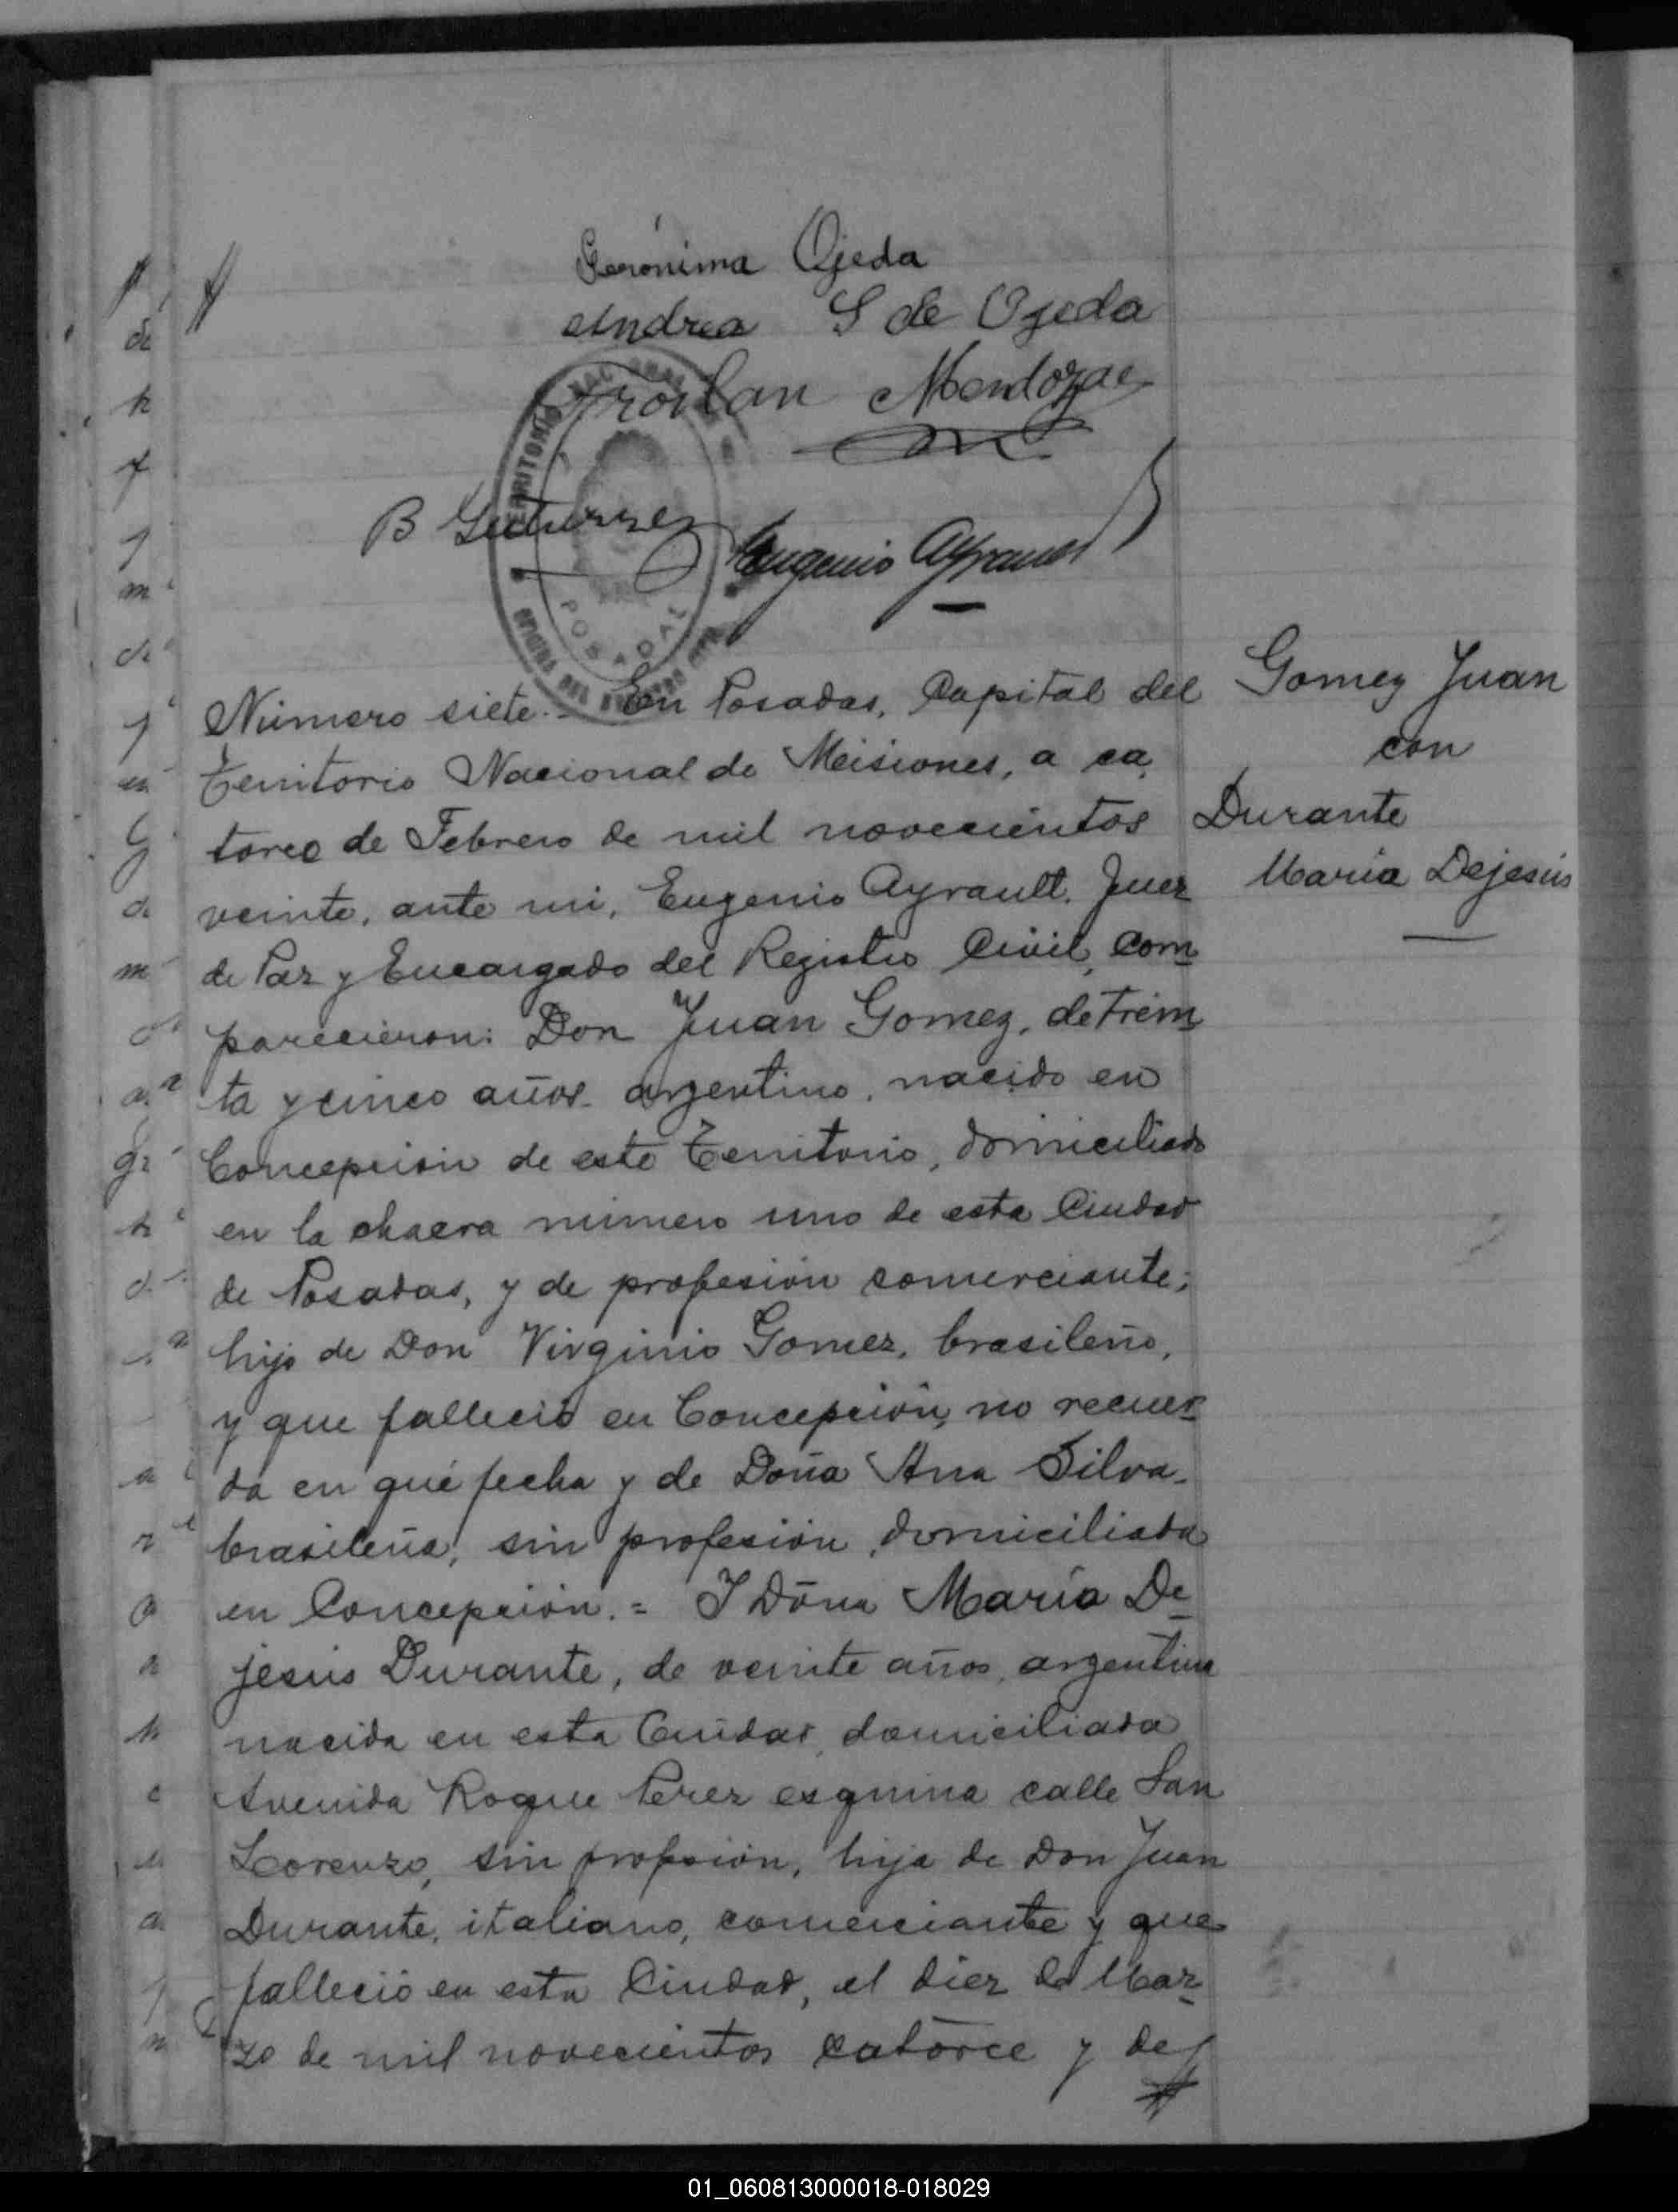 Gerónima Ojeda
Andrea S de Ojeda
Froilan Mendoza
B Gutierrez
Eugenio Ayrault
TERRITORIO NACIONAL
POSADAS
OFICINA DEL REGISTRO CIVIL
Gomez Juan
con
Durante
Maria Dejesús
Número siete.- En Posadas, Capital del
Territorio Nacional de Misiones, a ca
torce de Febrero de mil novecientos
veinte, ante mi, Eugenio Ayrault. Juez
de Paz y Encargado del Registro Civil, com
parecieron: Don Juan Gomez, de trein
ta y cinco años. argentino, nacido en
Concepción de este Territorio, domiciliado
en la chacra número uno de esta Ciudad
de Posadas, y de profesión comerciante;
hijo de Don Virginio Gomez, brasileño,
y que falleció en Concepción, no recuer
da en qué fecha y de Doña Ana Silva.
brasileña, sin profesión, domiciliada
en Concepción. = Y Doña María De
jesús Durante, de veinte años, argentina
nacida en esta Ciudad, domiciliada
Avenida Roque Perez esquina calle San
Lorenzo, sin profesión, hija de Don Juan
Durante, italiano, comerciante y que
falleció en esta Ciudad, el diez de Mar
zo de mil novecientos catorce y de
01_060813000018-018029